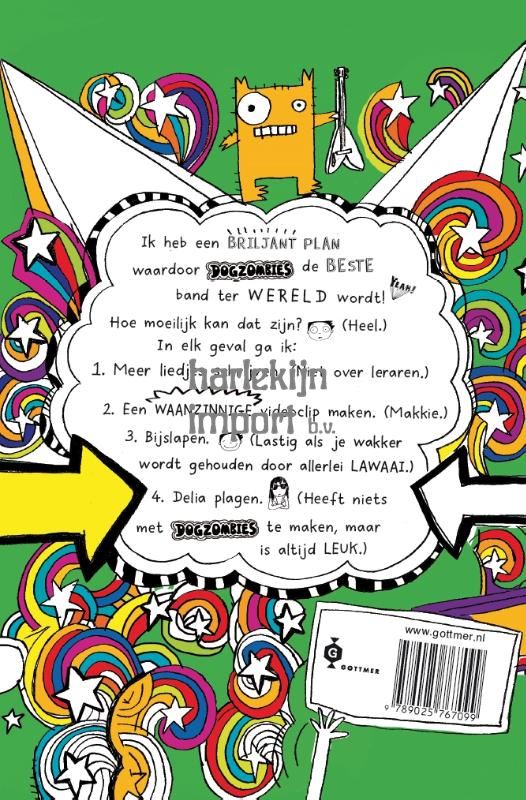 Ik heb een BRILJANT PLAN
waardoor DOGZOMBIES de BESTE
band ter WERELD wordt!
YEAH!
Hoe moeilijk kan dat zijn? (Heel.)
In elk geval ga ik:
1. Meer liedjes schrijven. (Niet over leraren.)
harlekijn
2. Een WAANZINNIGE videoclip maken. (Makkie.)
import b.v.
3. Bijslapen. (Lastig als je wakker
wordt gehouden door allerlei LAWAAI.)
4. Delia plagen. (Heeft niets
met DOGZOMBIES te maken, maar
is altijd LEUK.)
www.gottmer.nl
G
GOTTMER
9 789025 767099